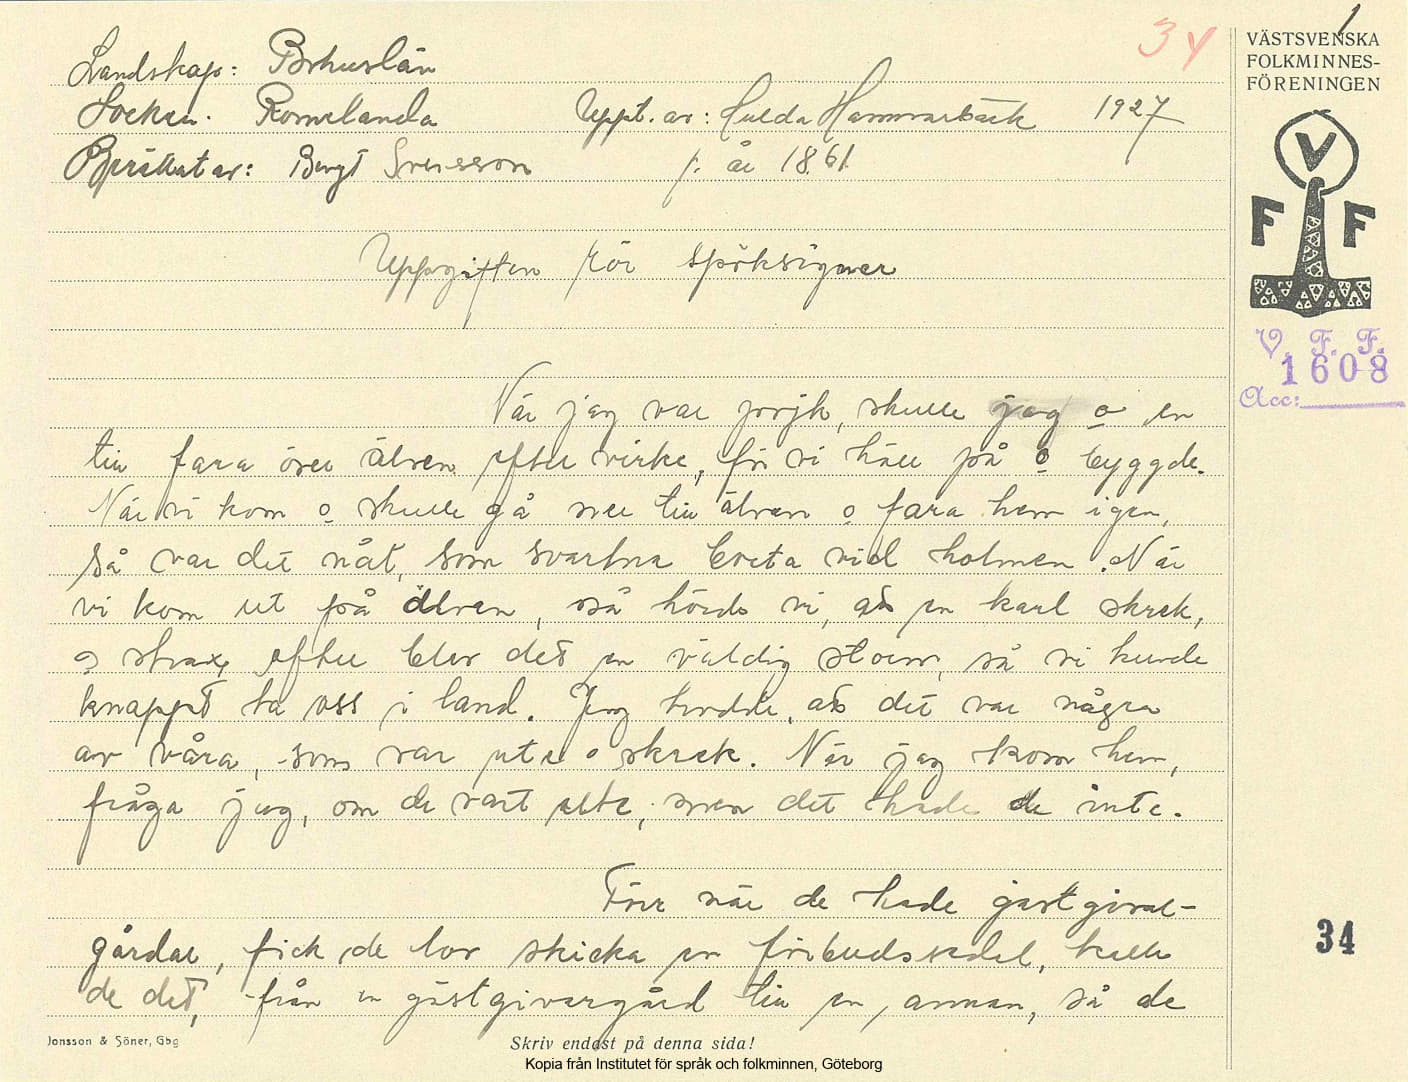 34
1
VÄSTSVENSKA
FOLKMINNES-
FÖRENINGEN
V
F F
V. F. F.
1608
Acc:
Landskap: Bohuslän
Socken: Romelanda Uppt. av: Hulda Hammarbäck 1927
Berättat av: Bengt Svensson f. år 1861.
Uppgiften rör spöksägner
När jag var pojk, skulle jag o en
till fara över älven efter virke, för vi höll på o byggde.
När vi kom o skulle gå ner till älven o fara hem igen,
så var det nåt, som svartna borta vid holmen. När
vi kom ut på älven, så hörde vi, att en karl skrek,
o strax efter blev det en väldig storm, så vi kunde
knappt ta oss i land. Jag trodde, att det var några
av våra, som var ute o skrek. När jag kom hem,
fråga jag, om de vart ute, men det hade de inte.
Förr när de hade gästgivar-
gårdar, fick de lov skicka en förbudskdal, kalla
de det, från en gästgivargård till en annan, så de
34
Jonsson & Söner, Gbg
Skriv endast på denna sida!
Kopia från Institutet för språk och folkminnen, Göteborg